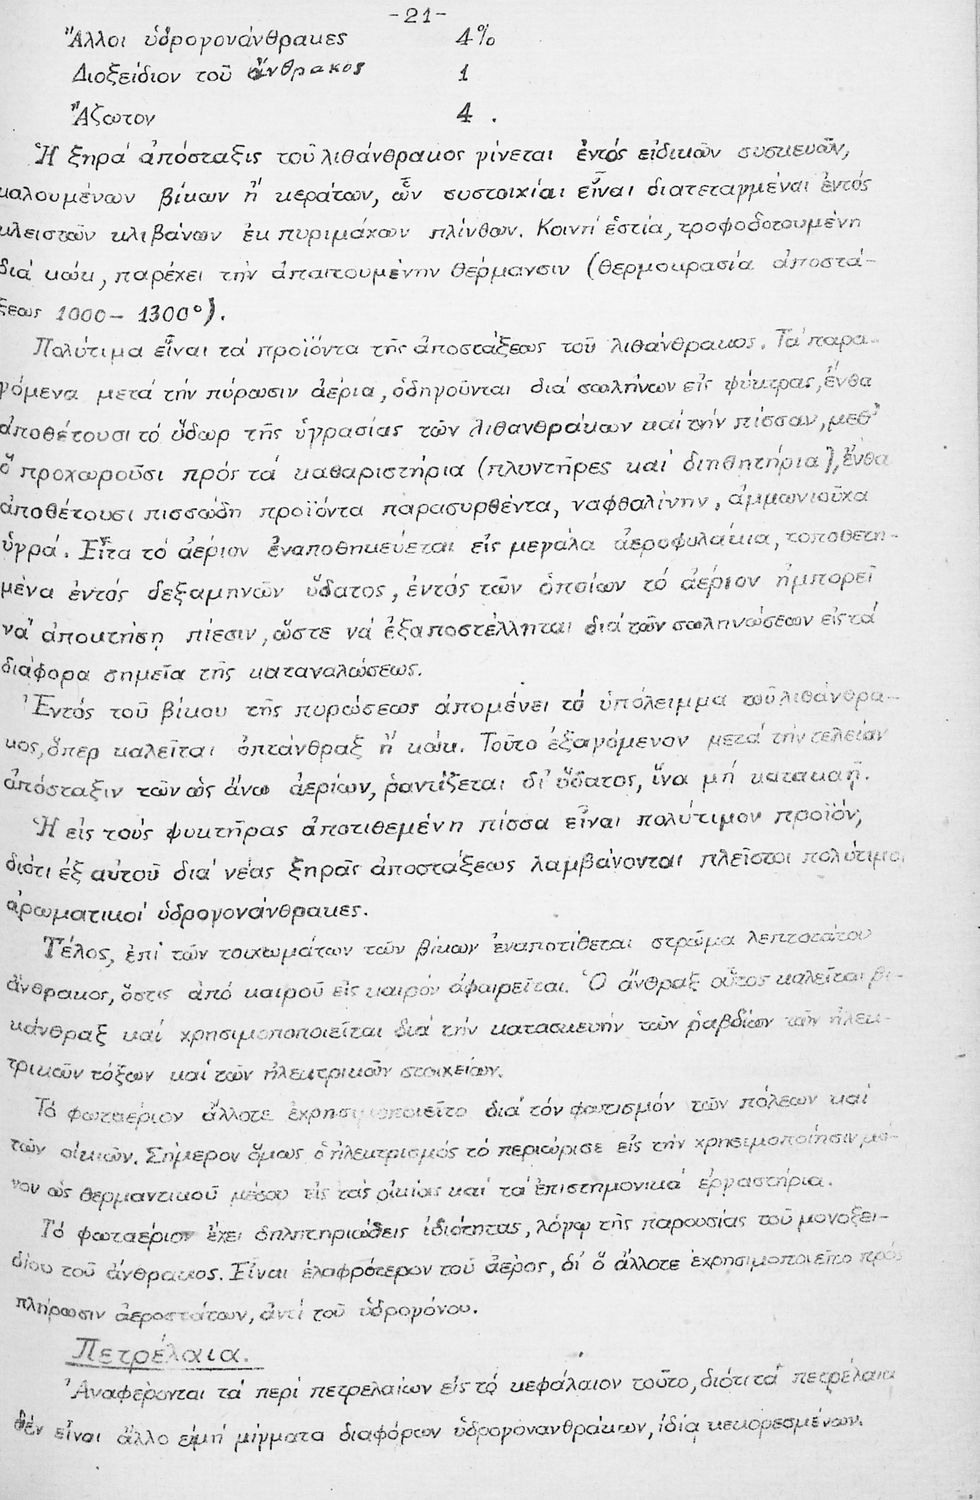 -21-
Ἄλλοι ὑδρογονάνθρακες 4%
Διοξείδιον τοῦ ἄνθρακος 1
Ἄζωτον 4 .
Ἡ ξηρά ἀπόσταξις τοῦ λιθάνθρακος γίνεται ἐντός εἰδικῶν συσκευῶν,
καλουμένων βίκων ἤ κεράτων, ὧν συστοιχίαι εἶναι διατεταγμέναι ἐντός
κλειστῶν κλιβάνων ἐκ πυριμάχων πλίνθων. Κοινή ἑστία, τροφοδοτουμένη
διά κώκ, παρέχει τήν ἀπαιτουμένην θέρμανσιν (θερμοκρασία ἀποστά-
ξεως 1000- 1300°).
Πολύτιμα εἶναι τά προϊόντα τῆς ἀποστάξεως τοῦ λιθάνθρακος. Τά παρα-
γόμενα μετά τήν πύρωσιν ἀέρια, ὁδηγοῦνται διά σωλήνων εἰς ψύκτρας, ἔνθα
ἀποθέτουσι τό ὕδωρ τῆς ὑγρασίας τῶν λιθανθράκων καί τήν πίσσαν, μεθ'
ὅ προχωροῦσι πρός τά καθαριστήρια (πλυντῆρες καί διηθητήρια), ἔνθα
ἀποθέτουσι πισσώδη προϊόντα παρασυρθέντα, ναφθαλίνην, ἀμμωνιοῦχα
ὑγρά. Εἶτα τό ἀέριον ἐναποθηκεύεται εἰς μεγάλα ἀεροφυλάκια, τοποθετη-
μένα ἐντός δεξαμηνῶν ὕδατος, ἐντός τῶν ὁποίων τό ἀέριον ἠμπορεῖ
νά ἀποκτήσῃ πίεσιν, ὥστε νά ἐξαποστέλληται διά τῶν σωληνώσεων εἰς τά
διάφορα σημεῖα τῆς καταναλώσεως.
Ἐντός τοῦ βίκου τῆς πυρώσεως ἀπομένει τό ὑπόλειμμα τοῦ λιθάνθρα-
κος, ὅπερ καλεῖται ὀπτάνθραξ ἤ κώκ. Τοῦτο ἐξαγόμενον μετά τήν τελείαν
ἀπόσταξιν τῶν ὡς ἄνω ἀερίων, ῥαντίζεται δι' ὕδατος, ἵνα μή κατακαῇ.
Ἡ εἰς τούς ψυκτῆρας ἀποτιθεμένη πίσσα εἶναι πολύτιμον προϊόν,
διότι ἐξ αὐτοῦ διά νέας ξηρᾶς ἀποστάξεως λαμβάνονται πλεῖστοι πολύτιμοι
ἀρωματικοί ὑδρογονάνθρακες.
Τέλος, ἐπί τῶν τοιχωμάτων τῶν βίκων ἐναποτίθεται στρῶμα λεπτοτάτου
ἄνθρακος, ὅστις ἀπό καιροῦ εἰς καιρόν ἀφαιρεῖται. Ὁ ἄνθραξ οὗτος καλεῖται βι-
κάνθραξ καί χρησιμοποποιεῖται διά τήν κατασκευήν τῶν ῥαβδίων τῶν ἠλεκ-
τρικῶν τόξων καί τῶν ἠλεκτρικῶν στοιχείων.
Τό φωταέριον ἄλλοτε ἐχρησιμοποιεῖτο διά τόν φωτισμόν τῶν πόλεων καί
τῶν οἰκιῶν. Σήμερον ὅμως ὁ ἠλεκτρισμός τό περιώρισε εἰς τήν χρησιμοποίησιν μό-
νον ὡς θερμαντικοῦ μέσου εἰς τάς οἰκίας καί τά ἐπιστημονικά ἐργαστήρια.
Τό φωταέριον ἔχει δηλητηριώδεις ἰδιότητας, λόγῳ τῆς παρουσίας τοῦ μονοξει-
δίου τοῦ ἄνθρακος. Εἶναι ἐλαφρότερον τοῦ ἀέρος, δι' ὅ ἄλλοτε ἐχρησιμοποιεῖτο πρός
πλήρωσιν ἀεροστάτων, ἀντί τοῦ ὑδρογόνου.
Πετρέλαια.
Ἀναφέρονται τά περί πετρελαίων εἰς τό κεφάλαιον τοῦτο, διότι τά πετρέλαια
δέν εἶναι ἄλλο εἰμή μίγματα διαφόρων ὑδρογονανθράκων, ἰδίᾳ κεκορεσμένων.